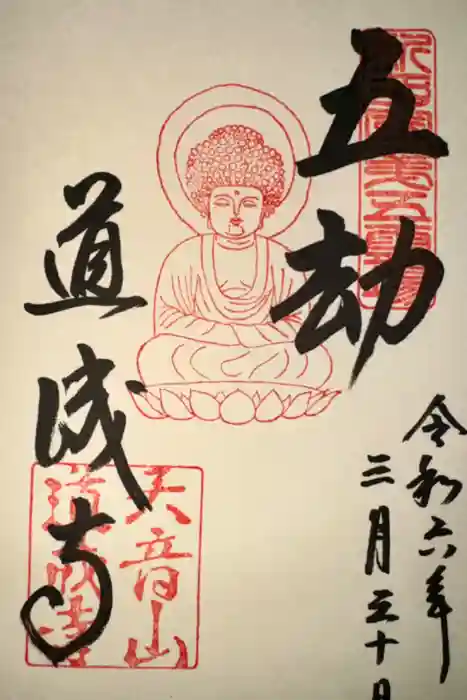 五劫
道成寺
令和六年
三月三十日
天音山
道成寺